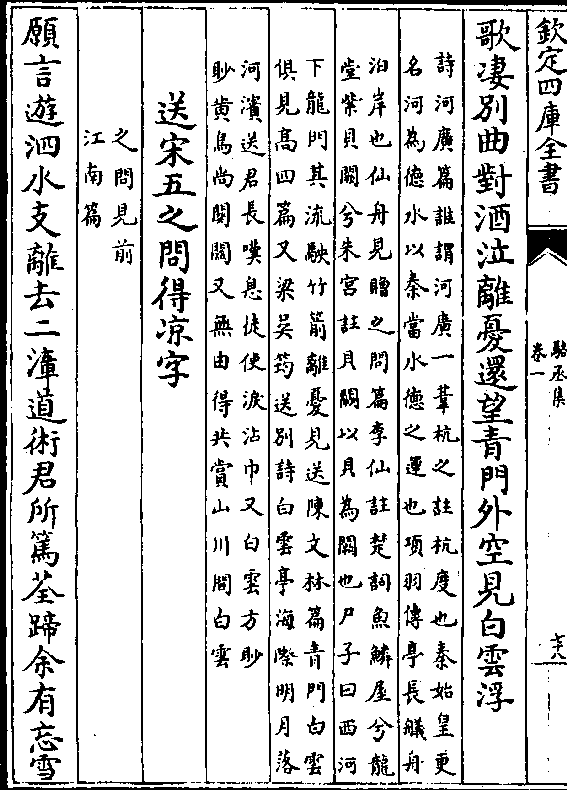 欽定四庫全書
駱丞集
卷一
歌凄别曲對酒泣離憂還望青門外空見白雲浮
詩河廣篇誰謂河廣一葦杭之註杭度也秦始皇更
名河為德水以秦當水德之運也項羽傳亭長艤舟
泊岸也仙舟見贈之問篇李仙註楚詞魚鱗屋兮龍
堂紫貝闕兮朱宮註貝闕以貝為闕也尸子曰西河
下龍門其流駛竹箭離憂見送陳文林篇青門白雲
俱見髙四篇又梁吴筠送别詩白雲亭海際明月落
河濱送君長嘆息徒使淚沾巾又白雲方眇
眇黄鳥尚闗闗又無由得共賞山川間白雲
送宋五之問得凉字
之問見前
江南篇
願言遊泗水支離去二漳道術君所篤荃蹄余有忘雪